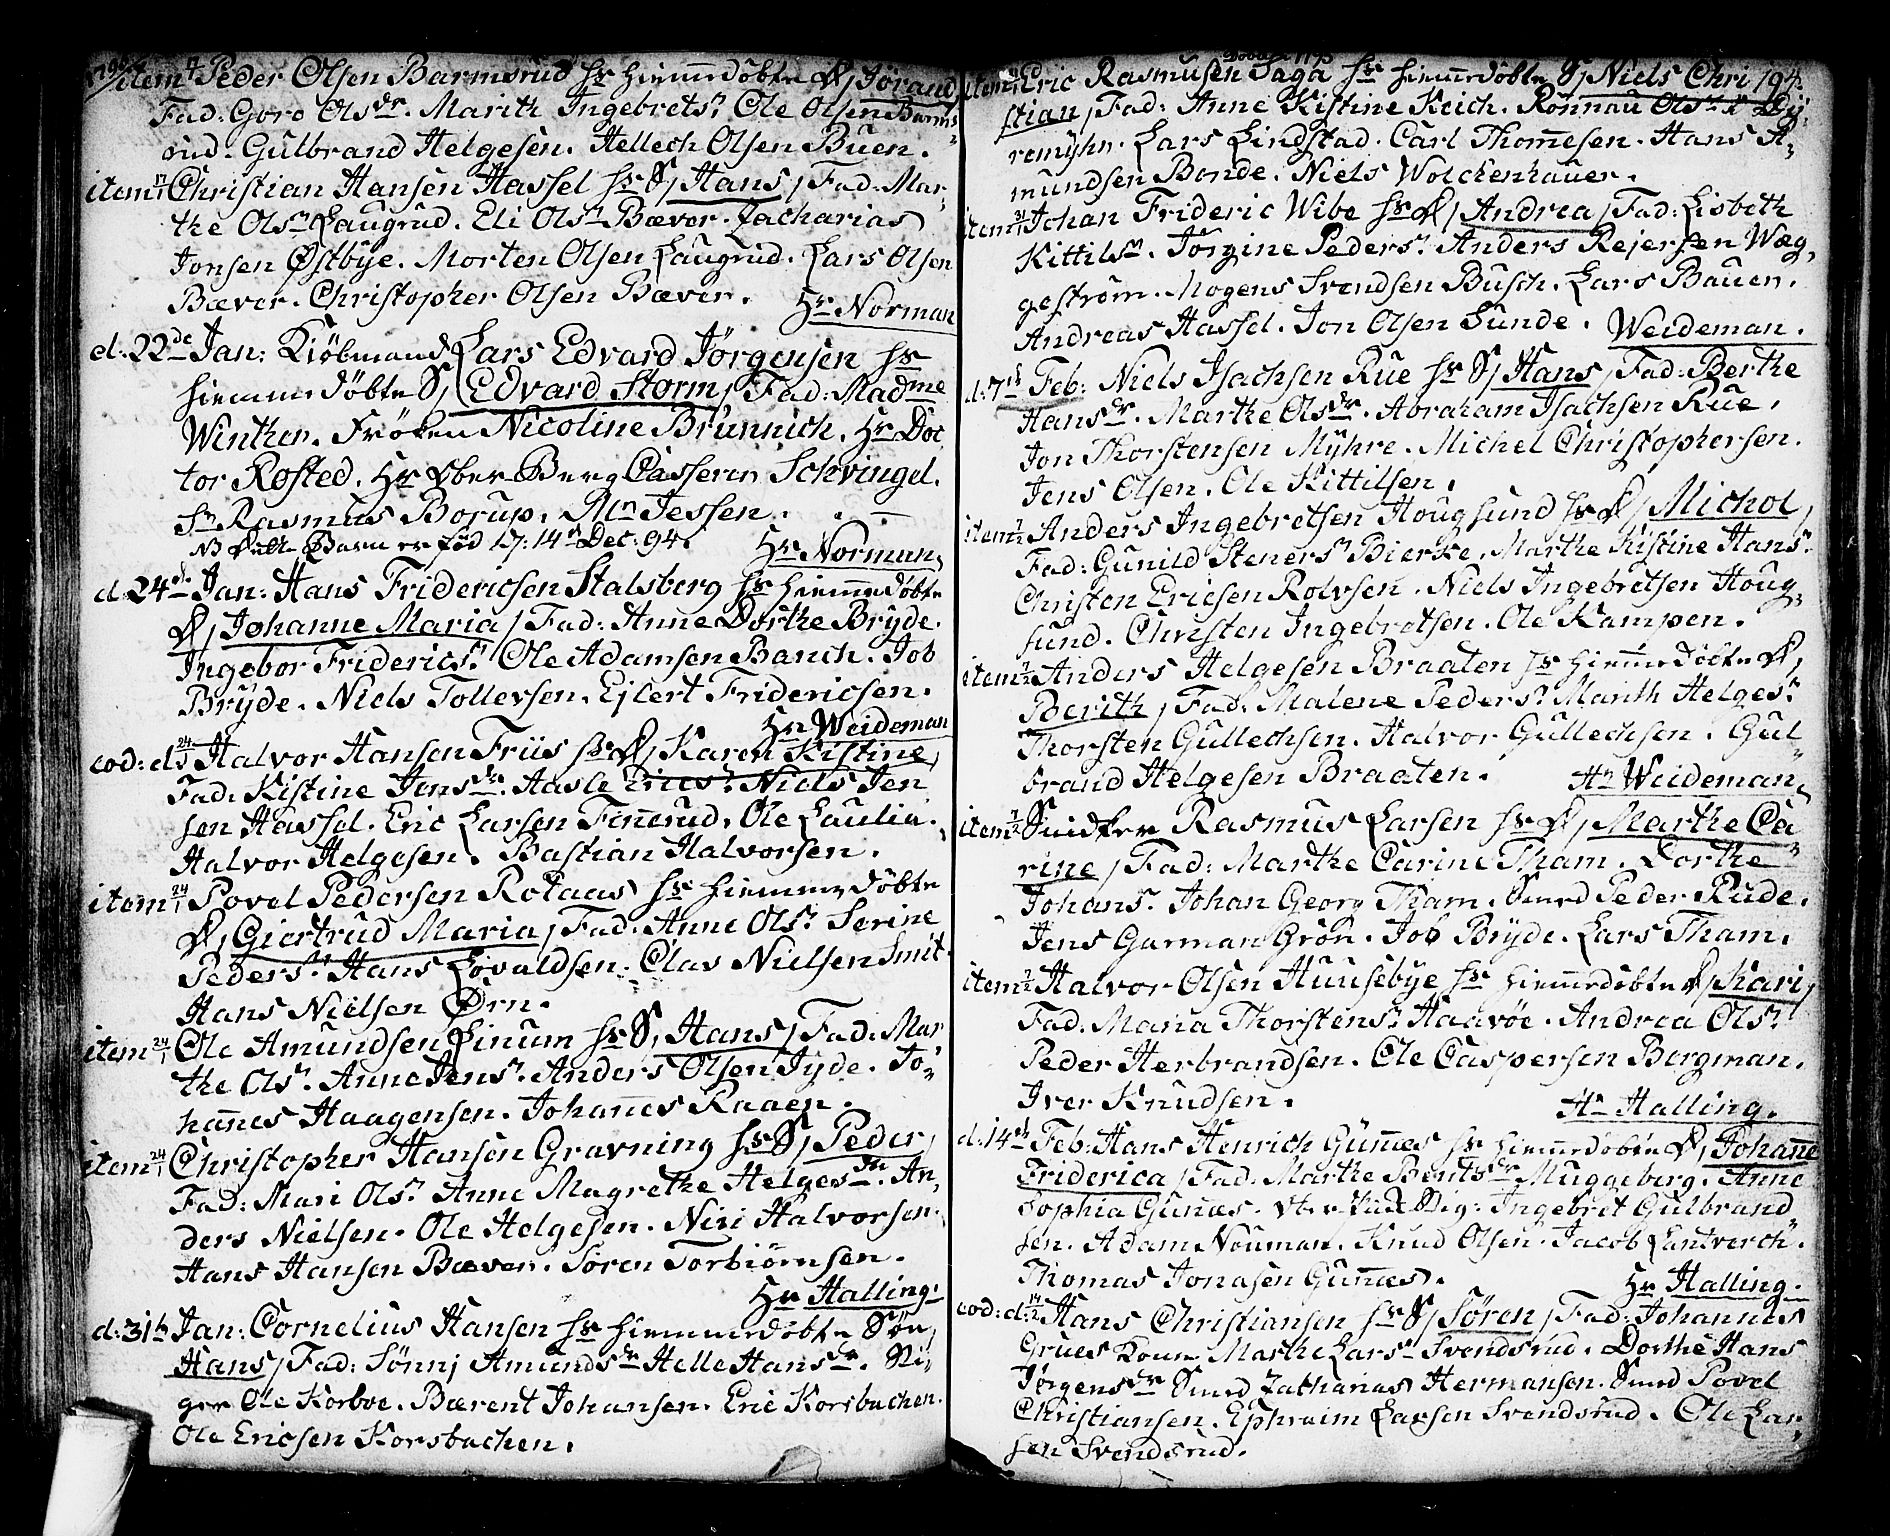 item Peder Olsen Barmsrud hs hiemmedøbte D, Jørand,
Fad: Goro Olsdr. Marith Ingebretsr Ole Olsen Barms
rud. Gulbrand Helgesen. Hellech Olsen Buen.
item 17/1 Christian Hansen Hassel hs S, Hans, Fad: Mar-
the Olsn Laugrud. Eli Olsn Bæver. Zacharias
Jonsen Østbye. Morten Olsen Laugrud. Lars Olsen
Bæver. Christopher Olsen Bæver.
Hr Norman
d: 22de Jan: Kiøbmand Lars Edvard Jørgensen hs
hiemmedøbte S, Edvard Storm, Fad: Madme
Winther. Frøken Nicoline Brünnich. Hr Doc
tor Rosted. Hr Ober Berg Casserer Schvingel.
Sr Rasmus Borup. Mr Jessen.
NB dette Barn er fød d: 14de Dec: 94.
Hr Norman
d. 24de Jan: Hans Fridericsen Stalsberg hs hiemmedøbte
D, Johanne Maria, Fad: Anne Dorthe Bryde.
Ingebor Fridericsr Ole Adamsen Banch. Job
Bryde. Niels Tollevsen. Ejlert Fridericsen.
Hr Weideman
eod: d: 24/1 Halvor Hansen Friis hs D, Karen Kistine,
Fad. Kistine Jensdr. Aasle Ericsr Niels Jen
sen Hassel. Eric Larsen Finnerud. Ole Laulia.
Halvor Helgesen. Bastian Halvorsen.
item 24/1 Povel Pedersen Rotaas hs hiemmedøbte
D, Giertrud Maria, Fad: Anne Olsr Serine
Pedersr Hans Lovaldsen. Olav Nielsen Smit
Hans Nielsen Ørn.
item 24/1 Ole Amundsen Linum hs S, Hans, Fad: Mar
the Olsr Anne Jensr. Anders Olsen Jyde. Jo-
hannes Haagensen. Johannes Raaen.
item 24/1 Christopher Hansen Gravning hs S, Peder,
Fad: Mari Olsr Anne Magrethe Helgesdr. An-
ders Nielsen. Ole Helgesen. Niri Halvorsen.
Hans Hansen Bæver. Søren Torbiørnsen.
Hr Halling.
d. 31te Jan: Cornelius Hansen hs hiemmedøbte Søn,
Hans, Fad: Sønnj Amundsdr Helle Hansdr. Sti-
ger Ole Korboe. Bærent Johansen. Eric Korsbachen.
Ole Ericsen Korsbachen.
item Eric Rasmusen Saga hs hiemmedøbte S, Niels Chri 194.
stian, Fad: Anne Kistine Keich. Rønnau Olsr Dy-
remyhr. Lars Lindstad. Carl Thomesen. Hans A-
mundsen Bonde. Niels Wolckenhauer.
item 31/1 Johan Frideric Wibe hs D, Andrea, Fad: Lisbeth
Kittilsr. Jørgine Pedersr. Anders Rejersen Wæg-
gestrøm. Mogens Svendsen Busch. Lars Bauer.
Andreas Hassel. Jon Olsen Lunde.
Weideman.
d: 7de Feb: Niels Isachsen Rue hs S, Hans, Fad: Berthe
Hansdr. Marthe Olsdr. Abraham Isachsen Rue.
Jon Thorstensen Myhre. Michel Christophersen.
Jens Olsen. Ole Kittilsen.
item 7/2 Anders Ingebretsen Hougsund hs D, Michol,
Fad: Gunild Stenersr Bierke. Marthe Kistine Hansr.
Christen Ericsen Rolvsen. Niels Ingebretsen Houg-
sund. Christen Ingebretsen. Ole Kampen.
item 7/2 Anders Helgesen Braaten hs hiemmedøbte D,
Berith, Fad. Malene Pedersr Marith Helgesr
Thorsten Gullechsen. Halvor Gullechsen. Gul
brand Helgesen Braaten.
Hr Weideman
item 7/2 Snidker Rasmus Larsen hs D, Marthe Ca
rine, Fad: Marthe Carine Tham. Dorthe
Johansr. Johan Georg Tham. Smed Peder Rude.
Jens Garman Grøn. Job Bryde. Lars Tham.
item 7/2 Halvor Olsen Huusebye hs hiemmedøbte D, Kari,
Fad. Maria Thorstensr Haavøe. Andrea Olsr
Peder Herbrandsen. Ole Caspersen Bergman.
Iver Knudsen.
Hr Halling.
d. 14de Feb: Hans Henrich Günnæs hs hiemmedøbte D, Johanne
Friderica, Fad. Marthe Bentsdr Muggeberg. Anne
Sophia Gunæs. Ingebret Gulbrand
sen. Adam Nouman. Knud Olsen. Jacob Lantverch.
Thomas Jonasen Gunnæs.
Hr Halling.
eod: d: 14/2 Hans Christiansen hs S, Søren, Fad: Johannes
Grues Kone Marthe Larsr Svendsrud. Dorthe Hans
Jørgensdr Smed Zacharias Hermansen. Smed Povel
Christiansen. Ephraim Larsen Svendsrud. Ole Lar-
sen Svendsrud.